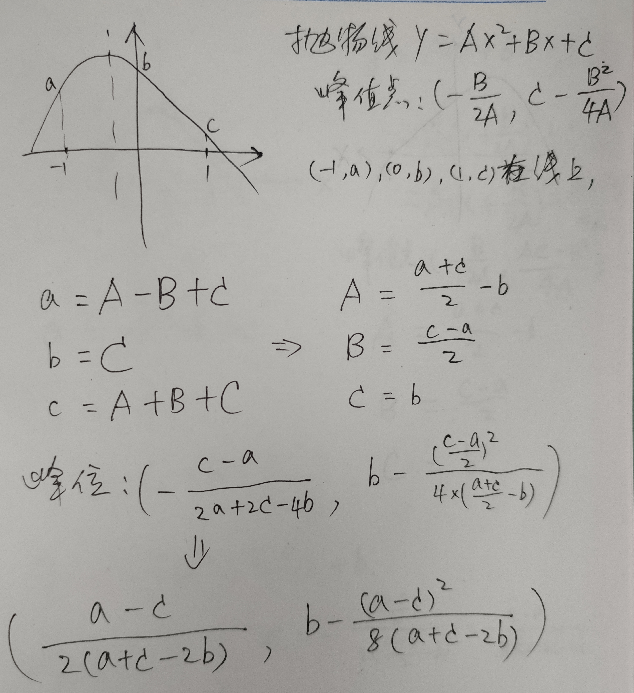 抛物线 Y = Ax²+Bx+C
峰值点: (-B/2A, C - B²/4A)
(-1,a), (0,b), (1,c) 在线上,
a
b
c
-1
1
a = A-B+C
b = C
c = A+B+C
⇒
A = (a+c)/2 - b
B = (c-a)/2
C = b
峰位: (- (c-a)/(2a+2c-4b), b - ((c-a)/2)²/(4×((a+c)/2 -b)))
⇓
((a-c)/(2(a+c-2b)), b- (a-c)²/(8(a+c-2b)))